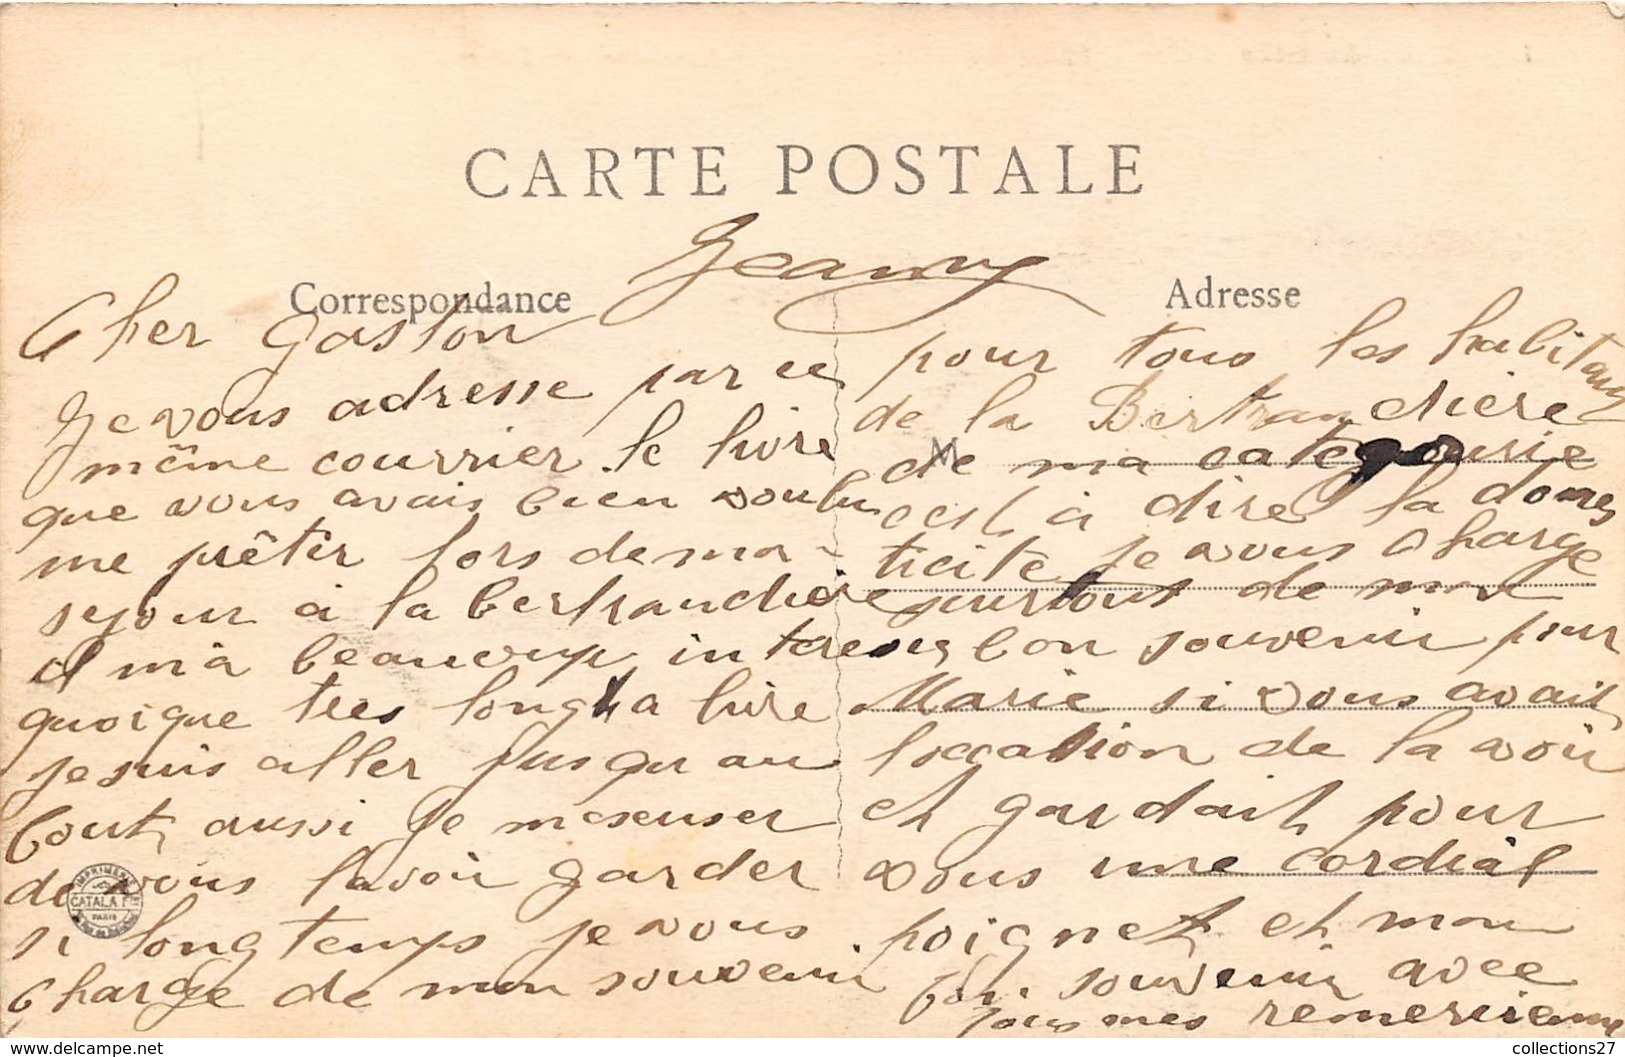 CARTE POSTALE
Correspondance
Adresse
Jeanny
Cher Gaston
Je vous adresse par ce
même courrier le livre
que vous avais bien voulu
me prêter lors de mon
sejour à la bertrandiere
il m'a beaucoup interessés
quoique tres long a lire
je suis aller jusqu au
bout, aussi je m
de vous lavoir garder
si longtemps je vous
charge de mon souvenir
pour tous les habitans
de la Bertrandiere
de ma categourie
cest à dire la domes
ticité je vous charge
surtous de mon
bon souvenir pour
Marie si vous avait
loccasion de la voir
et gardait pour
vous une cordial
poignet et mon
bon souvenir avec
tous mes remerciemn
IMPRIMERIE
CATALA F
PARIS
collections27